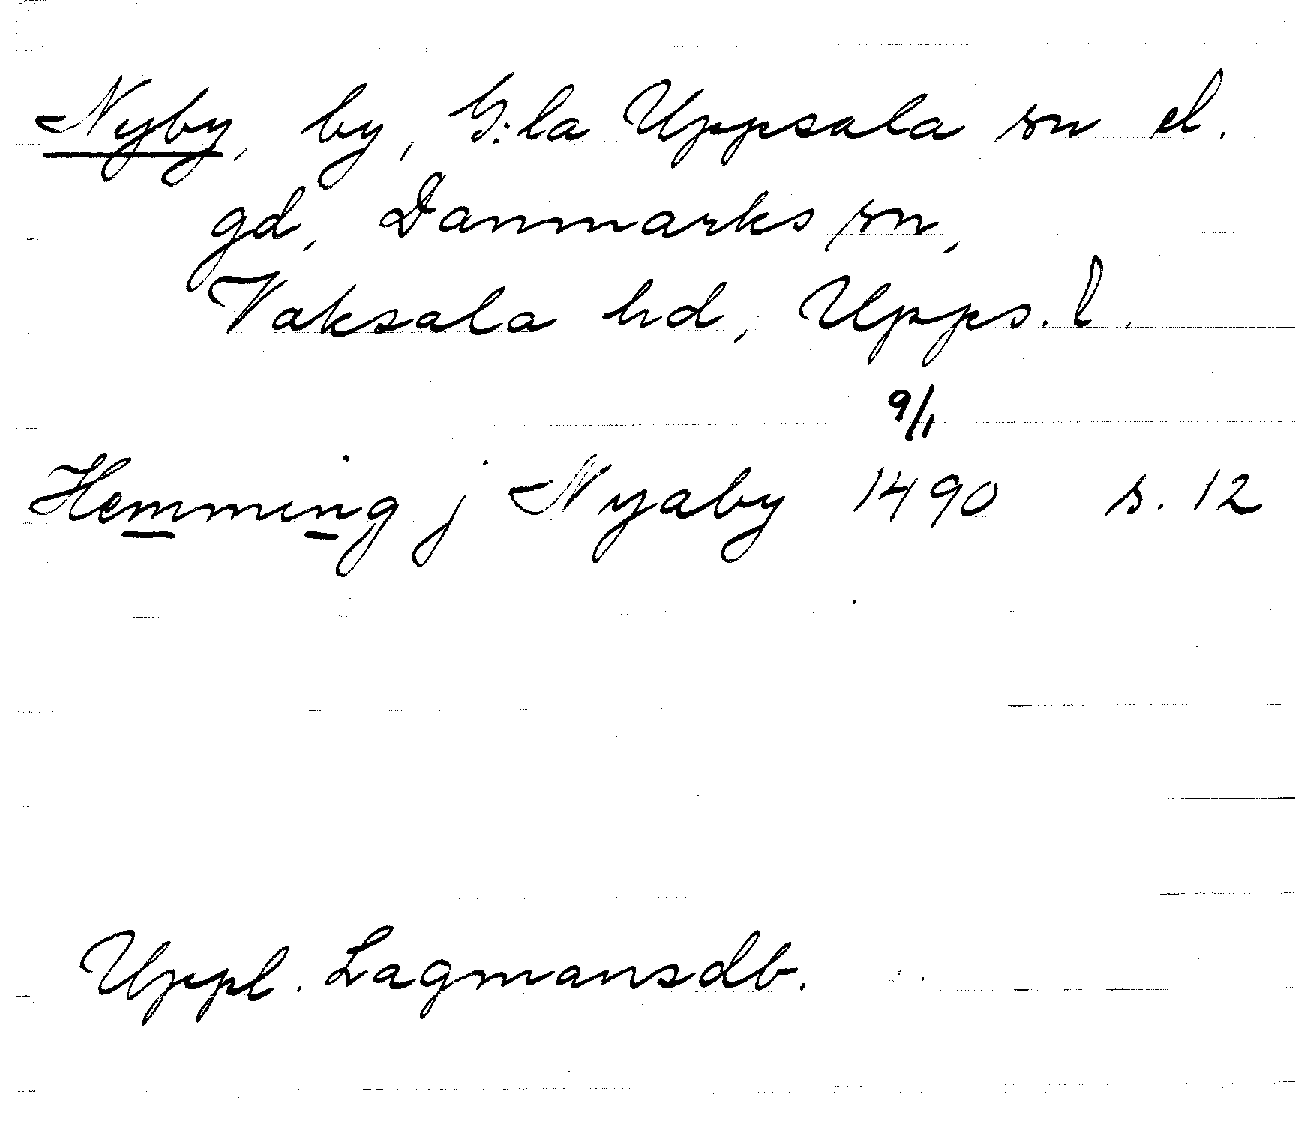 Nyby, by, G:la Uppsala sn el.
gd, Danmarks sn,
Vaksala hd, Upps. l.
9/1
Hemming j Nyaby 1490 s. 12
Uppl. Lagmansdb.